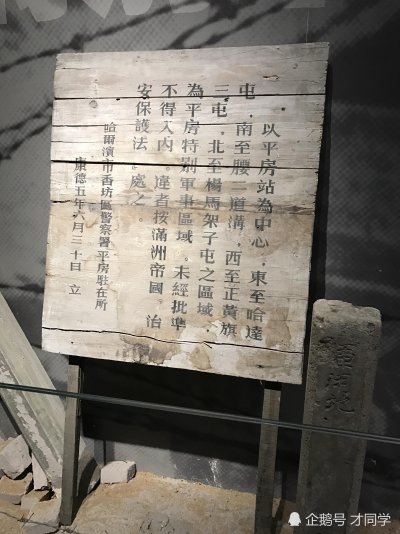 以平房站為中心，東至哈達
屯，南至腰二道溝，西至正黃旗
三屯，北至楊馬架子屯之區域，
為平房特別軍事區域。未經批準
不得入內。違者按滿洲帝國《治
安保護法》處之。
哈爾濱市香坊區警察署平房駐在所
康德五年六月三十日 立
用地
企鹅号 才同学